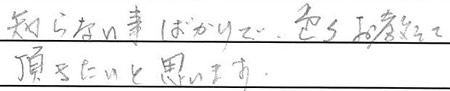 知らない事ばかりで、色々お教えて
頂きたいと思います.